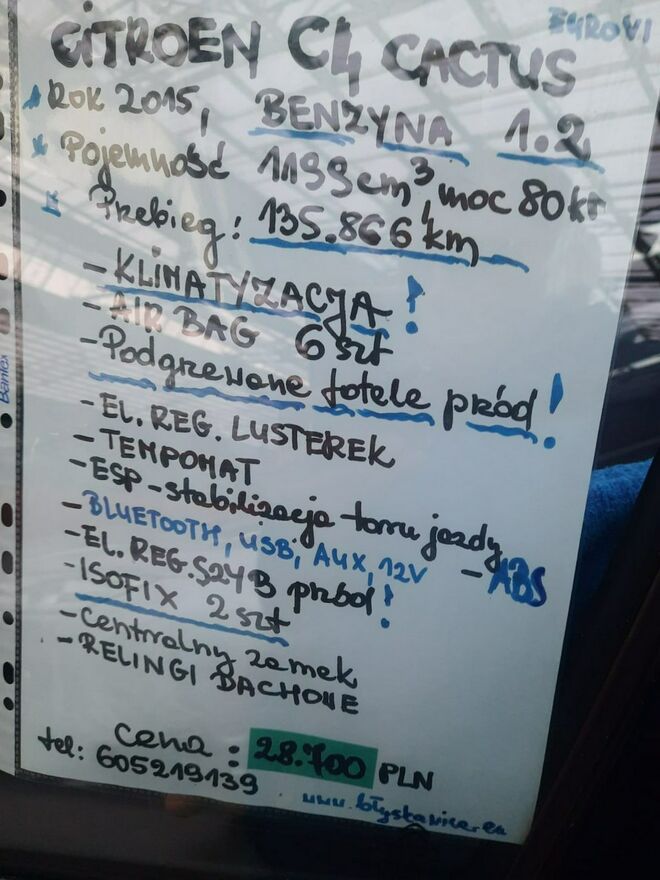 EURO VI
CITROEN C4 CACTUS
Rok 2015, BENZYNA 1.2
Pojemność 1199 cm³, moc 80 kr
Przebieg: 135.866 km
- KLIMATYZACJA!
- AIR BAG 6 szt
- Podgrzewane fotele przód!
- EL. REG. LUSTEREK
- TEMPOMAT
- ESP - stabilizacja toru jazdy
- BLUETOOTH, USB, AUX, 12V - ABS
- EL. REG. SZYB przód!
- ISOFIX 2 szt
- Centralny zamek
- RELINGI DACHOWE
Cena: 28.700 PLN
tel: 605219139
Bantex